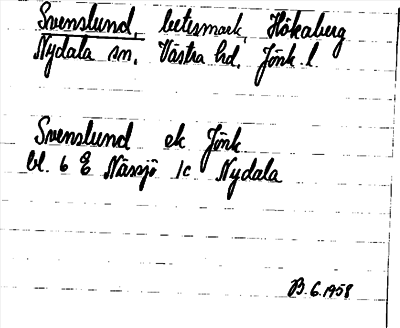 Svenslund, betesmark, Hökaberg
Nydala sn. Västra hd. Jönk. l.
Svenslund ek Jönk
bl. 6 E Nässjö 1c Nydala
B. G. 1958